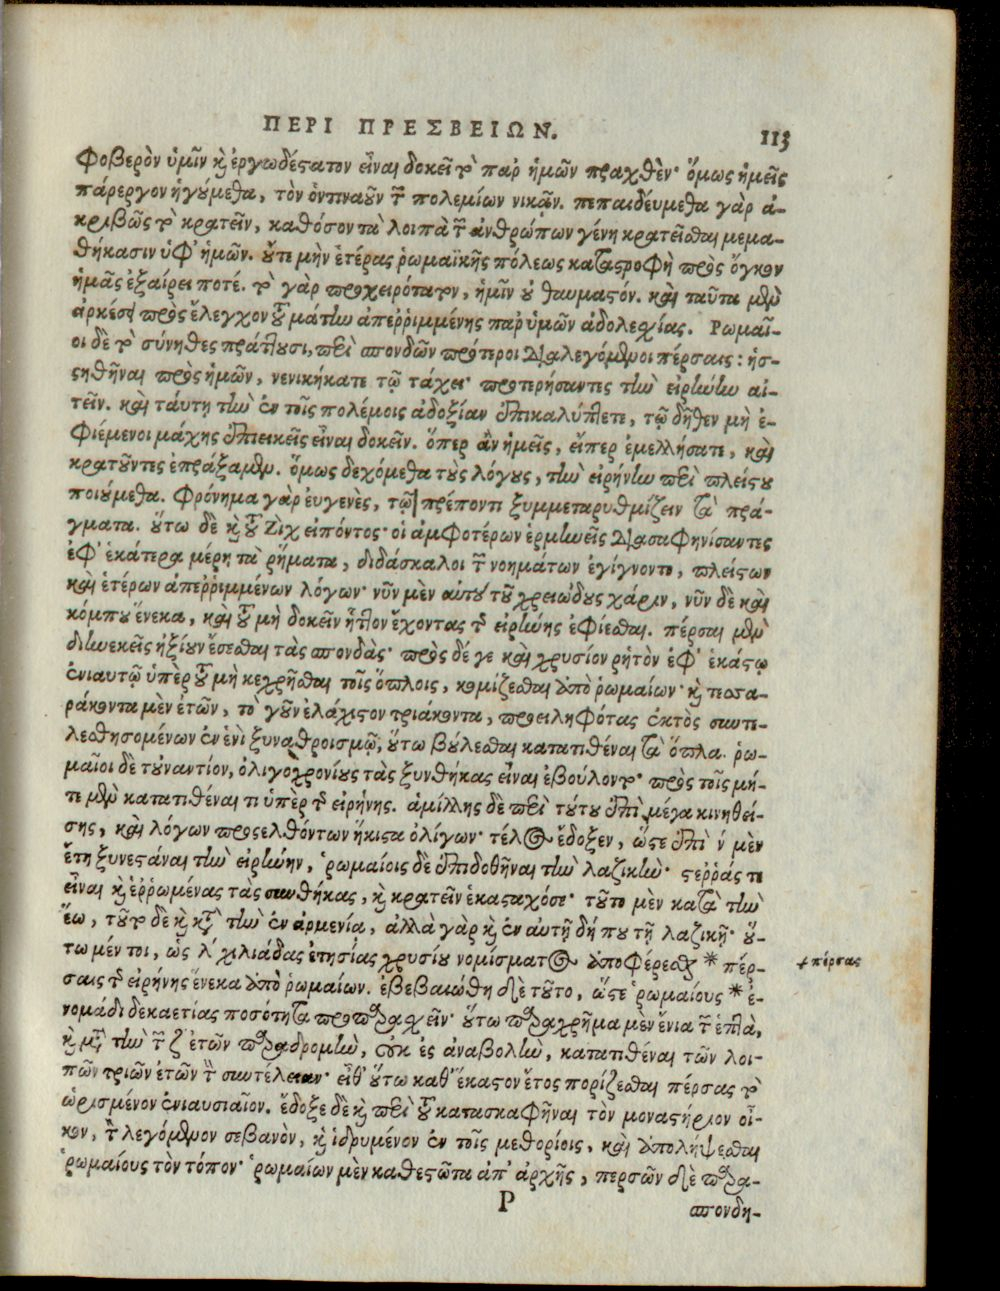 ΠΕΡΙ ΠΡΕΣΒΕΙΩΝ. 113
φοβερὸν ὑμῖν καὶ ἐργωδέστατον εἶναι δοκεῖ τὸ παρ ἡμῶν πραχθὲν· ὅμως ἡμεῖς
πάρεργον ἡγούμεθα, τὸν ὁντιναοῦν τῶν πολεμίων νικᾷν. πεπαιδεύμεθα γὰρ ἀ-
κριβῶς τὸ κρατεῖν, καθόσον τὰ λοιπὰ τῶν ἀνθρώπων γένη κρατεῖσθαι μεμα-
θήκασιν ὑφ' ἡμῶν. οὔτι μὴν ἑτέρας ῥωμαϊκῆς πόλεως καταστροφὴ πρὸς ὄγκον
ἡμᾶς ἐξαίρει ποτέ. τὸ γὰρ προχειρότατον, ἡμῖν οὐ θαυμαστόν. καὶ ταῦτα μὲν
ἀρκέσει πρὸς ἔλεγχον τοῦ μάτην ἀπεῤῥιμμένης παρ' ὑμῶν ἀδολεσχίας. Ρωμαῖ-
οι δὲ τὸ σύνηθες πράττουσι, περὶ σπονδῶν πρότεροι διαλεγόμενοι πέρσαις: ἡσ-
σηθῆναι πρὸς ἡμῶν, νενικήκατε τῷ τάχει· προτερήσαντες τὴν εἰρήνην αἰ-
τεῖν. καὶ ταύτῃ τὴν ἐν τοῖς πολέμοις ἀδοξίαν ἐπικαλύπτετε, τῷ δῆθεν μὴ ἐ-
φιέμενοι μάχης ἐπιεικεῖς εἶναι δοκεῖν. ὅπερ ἂν ἡμεῖς, εἴπερ ἐμελλήσατε, καὶ
κρατοῦντες ἐπράξαμεν. ὅμως δεχόμεθα τοὺς λόγους, τὴν εἰρήνην περὶ πλείστου
ποιούμεθα. φρόνημα γὰρ εὐγενὲς, τῷ πρέποντι ξυμμεταρυθμίζειν τὰ πρά-
γματα. οὕτω δὲ καὶ τοῦ Ζὶχ εἰπόντος· οἱ ἀμφοτέρων ἑρμηνεῖς διασαφηνίσαντες
ἐφ' ἑκάτερα μέρη τὰ ρήματα, διδάσκαλοι τῶν νοημάτων ἐγίγνοντο, πλείστων
καὶ ἑτέρων ἀπεῤῥιμμένων λόγων· νῦν μὲν αὐτοῦ τοῦ χρειώδους χάριν, νῦν δὲ καὶ
κόμπου ἕνεκα, καὶ τοῦ μὴ δοκεῖν ἧττον ἔχοντας τῆς εἰρήνης ἐφίεσθαι. πέρσαι μὲν
διηνεκεῖς ἠξίουν ἔσεσθαι τὰς σπονδὰς· πρὸς δέ γε καὶ χρυσίον ρητὸν ἐφ' ἑκάστῳ
ἐνιαυτῷ ὑπὲρ τοῦ μὴ κεχρῆσθαι τοῖς ὅπλοις, κομίζεσθαι ἀπὸ ῥωμαίων· καὶ τεσσα-
ράκοντα μὲν ἐτῶν, τὸ γοῦν ἐλάχιστον τριάκοντα, προειληφότας ἐκτὸς συντε-
λεσθησομένων ἐν ἑνὶ ξυναθροισμῷ, οὕτω βούλεσθαι κατατιθέναι τὰ ὅπλα. ῥω-
μαῖοι δὲ τοὐναντίον, ὀλιγοχρονίους τὰς ξυνθήκας εἶναι ἐβούλοντο· πρὸς τοῖς μή-
τε μὲν κατατιθέναι τι ὑπὲρ τῆς εἰρήνης. ἁμίλλης δὲ περὶ τούτου ἐπὶ μέγα κινηθεί-
σης, καὶ λόγων προςελθόντων ἥκιστα ὀλίγων· τέλος ἔδοξεν, ὥστε ἐπὶ ν́ μὲν
ἔτη ξυνεστάναι τὴν εἰρήνην, ῥωμαίοις δὲ ἐπιδοθῆναι τὴν λαζικὴν· στεῤῥάς τε
εἶναι καὶ ἐῤῥωμένας τὰς συνθήκας, καὶ κρατεῖν ἑκασταχόσε· τοῦτο μὲν κατὰ τὴν
ἕω, τοῦτο δὲ καὶ κατὰ τὴν ἐν ἀρμενίᾳ, ἀλλὰ γὰρ καὶ ἐν αὐτῇ δή που τῇ λαζικῇ· οὕ-
τω μέν τοι, ὡς λ' χιλιάδας ἐτησίας χρυσίου νομίσματος ἀποφέρεσθαι * πέρ-
σαις τῆς εἰρήνης ἕνεκα ἀπὸ ῥωμαίων. ἐβεβαιώθη δὲ τοῦτο, ὥστε ῥωμαίους * ἐ-
νομάδι δεκαετίας ποσότητα προπαρασχεῖν· οὕτω παραχρῆμα μὲν ἔνια τῶν ἑπτὰ,
καὶ μετὰ τὴν τῶν ζ' ἐτῶν παραδρομὴν, οὐκ ἐς ἀναβολὴν, κατατιθέναι τῶν λοι-
πῶν τριῶν ἐτῶν τὴν συντέλειαν· εἶθ' οὕτω καθ' ἕκαστον ἔτος πορίζεσθαι πέρσας τὸ
ὡρισμένον ἐνιαυσιαῖον. ἔδοξε δὲ καὶ περὶ τοῦ κατασκαφῆναι τὸν μοναστήριον οἶ-
κον, τὸν λεγόμενον σεβανὸν, καὶ ἱδρυμένον ἐν τοῖς μεθορίοις, καὶ ἀπολήψεσθαι
ῥωμαίους τὸν τόπον· ῥωμαίων μὲν καθεστῶτα ἀπ' ἀρχῆς, περσῶν δὲ παρα-
P σπονδη-
+ πέρσας